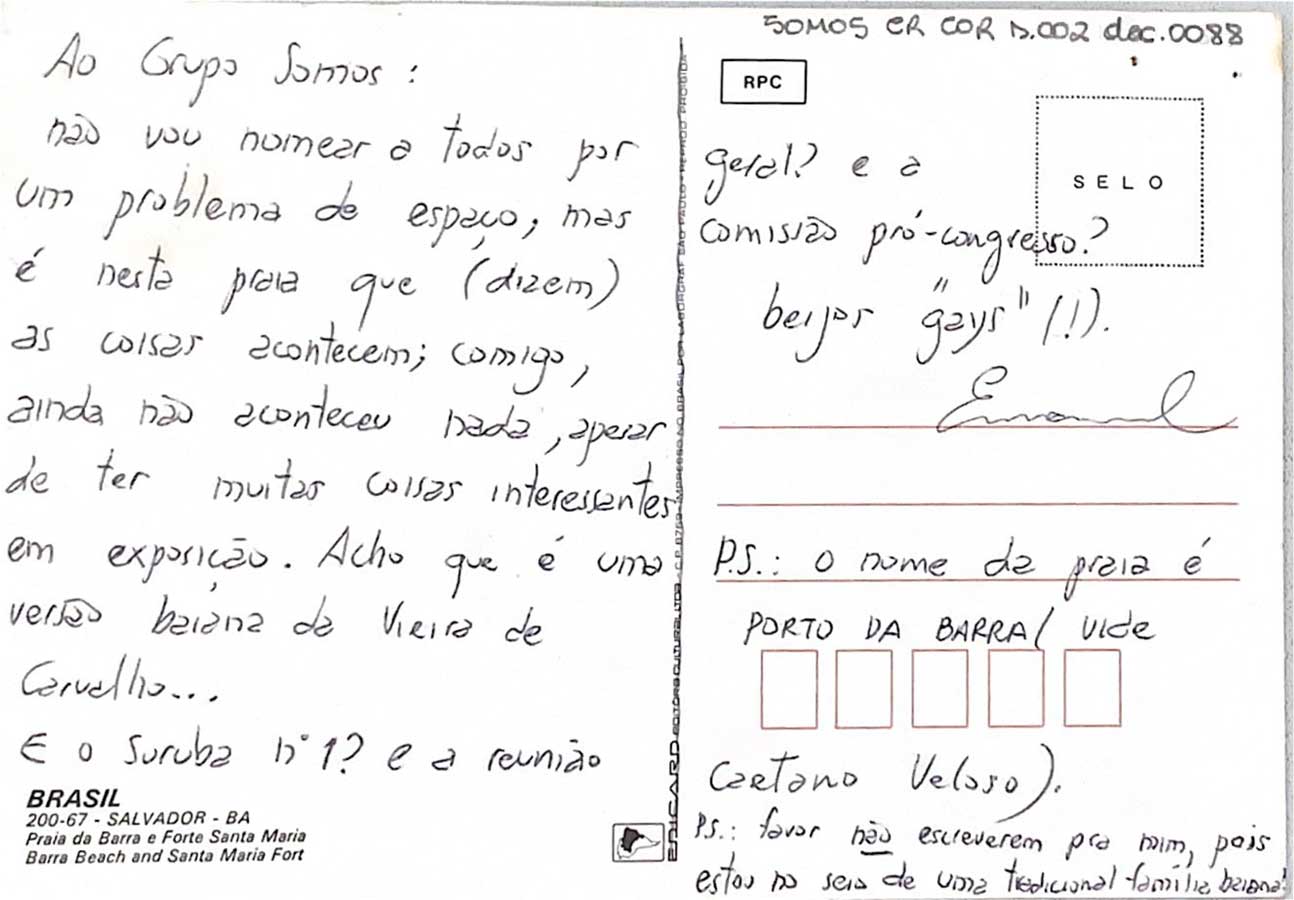 SOMOS CR COR D.002 doc.0088
Ao Grupo Somos:
não vou nomear a todos por
um problema de espaço; mas
é nesta praia que (dizem)
as coisas acontecem; comigo,
ainda não aconteceu nada, apesar
de ter muitas coisas interessantes
em exposição. Acho que é uma
versão baiana da Vieira de
Carvalho...
E o Suruba nº 1? e a reunião
BRASIL
200-67 - SALVADOR - BA
Praia da Barra e Forte Santa Maria
Barra Beach and Santa Maria Fort
EDICARD EDITORA CULTURAL LTDA - C.P. 8759 - IMPRESSO NO BRASIL POR LABORGRAF SÃO PAULO - REPROD. PROIBIDA
RPC
SELO
geral? e a
comissão pró-congresso?
beijos "gays" (!).
Emanuel
P.S.: o nome da praia é
PORTO DA BARRA( vide
Caetano Veloso).
P.S.: favor não escreverem pra mim, pois
estou no seio de uma tradicional família baiana!